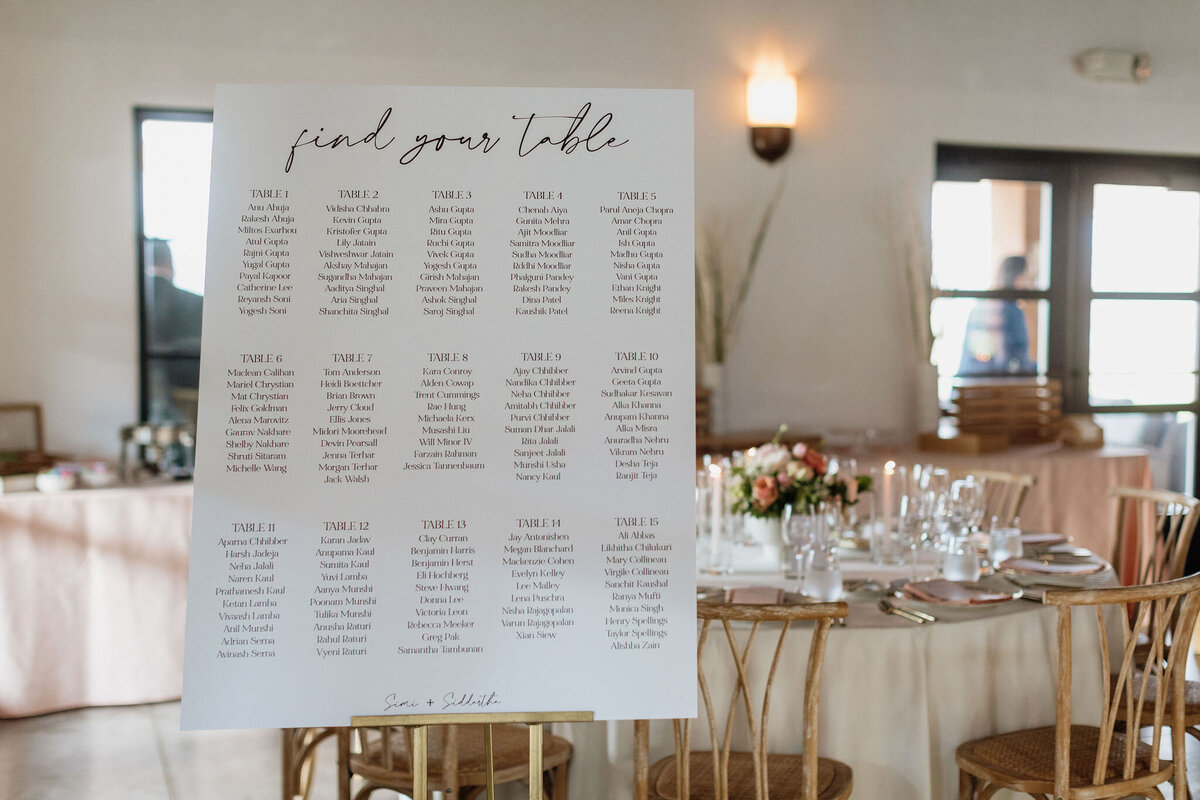 find your table
TABLE 1
Anu Ahuja
Rakesh Ahuja
Miltos Exarhou
Atul Gupta
Rajni Gupta
Yugal Gupta
Payal Kapoor
Catherine Lee
Reyansh Soni
Yogesh Soni
TABLE 2
Vidisha Chhabra
Kevin Gupta
Kristofer Gupta
Lily Jatain
Vishveshwar Jatain
Akshay Mahajan
Sugandha Mahajan
Aaditya Singhal
Aria Singhal
Shanchita Singhal
TABLE 3
Ashu Gupta
Mira Gupta
Ritu Gupta
Ruchi Gupta
Vivek Gupta
Yogesh Gupta
Girish Mahajan
Praveen Mahajan
Ashok Singhal
Saroj Singhal
TABLE 4
Chenab Aiya
Gunita Mehra
Ajit Moodliar
Samitra Moodliar
Sudha Moodliar
Riddhi Moodliar
Phalguni Pandey
Rakesh Pandey
Dina Patel
Kaushik Patel
TABLE 5
Parul Aneja Chopra
Amar Chopra
Anil Gupta
Ish Gupta
Madhu Gupta
Nisha Gupta
Vani Gupta
Ethan Knight
Miles Knight
Reena Knight
TABLE 6
Maclean Calihan
Mariel Chrystian
Mat Chrystian
Felix Goldman
Alena Marovitz
Gaurav Nakhare
Shelby Nakhare
Shruti Sitaram
Michelle Wang
TABLE 7
Tom Anderson
Heidi Boettcher
Brian Brown
Jerry Cloud
Ellis Jones
Midori Moorehead
Devin Pearsall
Jenna Terhar
Morgan Terhar
Jack Walsh
TABLE 8
Kara Conroy
Alden Cowap
Trent Cummings
Rae Hung
Michaela Kerx
Musashi Liu
Will Minor IV
Farzain Rahman
Jessica Tannenbaum
TABLE 9
Ajay Chhibber
Nandika Chhibber
Neha Chhibber
Amitabh Chhibber
Purvi Chhibber
Suman Dhar Jalali
Rita Jalali
Sanjeet Jalali
Munshi Usha
Nancy Kaul
TABLE 10
Arvind Gupta
Geeta Gupta
Sudhakar Kesavan
Alka Khanna
Anupam Khanna
Alka Misra
Anuradha Nehru
Vikram Nehru
Desha Teja
Ranjit Teja
TABLE 11
Aparna Chhibber
Harsh Jadeja
Neha Jalali
Naren Kaul
Prathamesh Kaul
Ketan Lamba
Vivaash Lamba
Anil Munshi
Adrian Serna
Avinash Serna
TABLE 12
Karan Jadav
Anupama Kaul
Sumita Kaul
Yuvi Lamba
Aanya Munshi
Poonam Munshi
Tulika Munshi
Anusha Raturi
Rahul Raturi
Vyeni Raturi
TABLE 13
Clay Curran
Benjamin Harris
Benjamin Herst
Eli Hochberg
Steve Hwang
Donna Lee
Victoria Leon
Rebecca Meeker
Greg Pak
Samantha Tambunan
TABLE 14
Jay Antonishen
Megan Blanchard
Mackenzie Cohen
Evelyn Kelley
Lee Malley
Lena Puschra
Nisha Rajagopalan
Varun Rajagopalan
Xian Siew
TABLE 15
Ali Abbas
Likhitha Chilukuri
Mary Collineau
Virgile Collineau
Sanchit Kaushal
Ranya Mufti
Monica Singh
Henry Spellings
Taylor Spellings
Alishba Zain
Simi + Siddartha